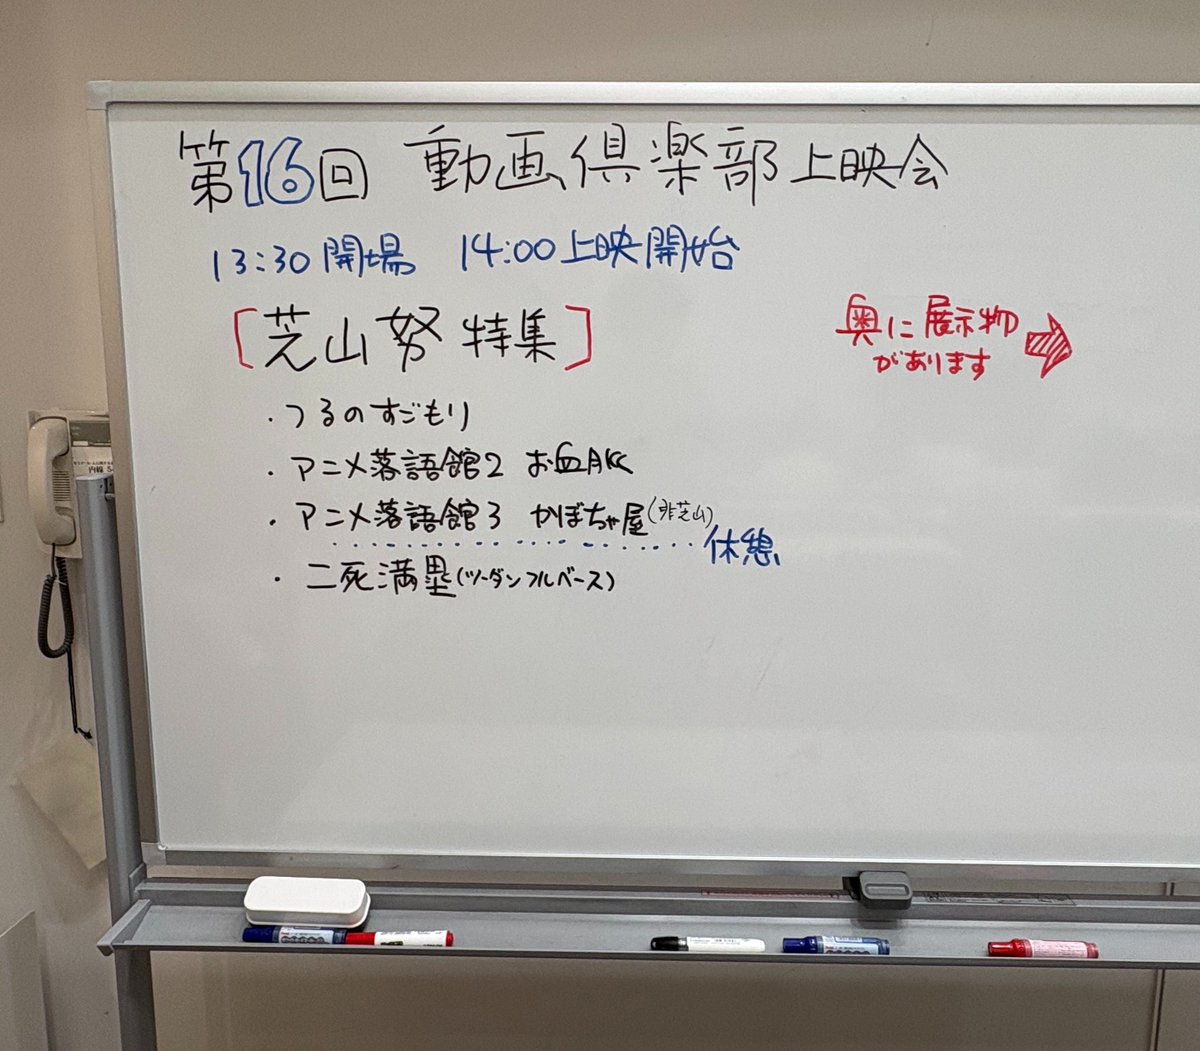 第16回 動画倶楽部上映会
13:30開場 14:00上映開始
[芝山努 特集]
奥に展示物
があります
・つるのすごもり
・アニメ落語館2 お血脈
・アニメ落語館3 かぼちゃ屋(非芝山)
休憩
・二死満塁(ツーダンフルベース)
内線